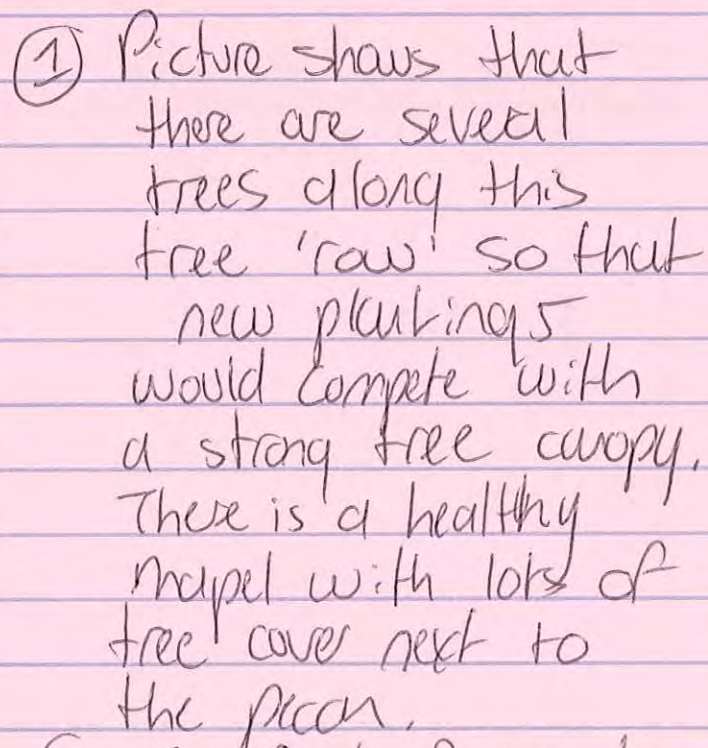 ① Picture shows that
there are several
trees along this
tree 'row' so that
new plantings
would compete with
a strong tree canopy.
There is a healthy
mapel with lots of
tree cover next to
the pecan.